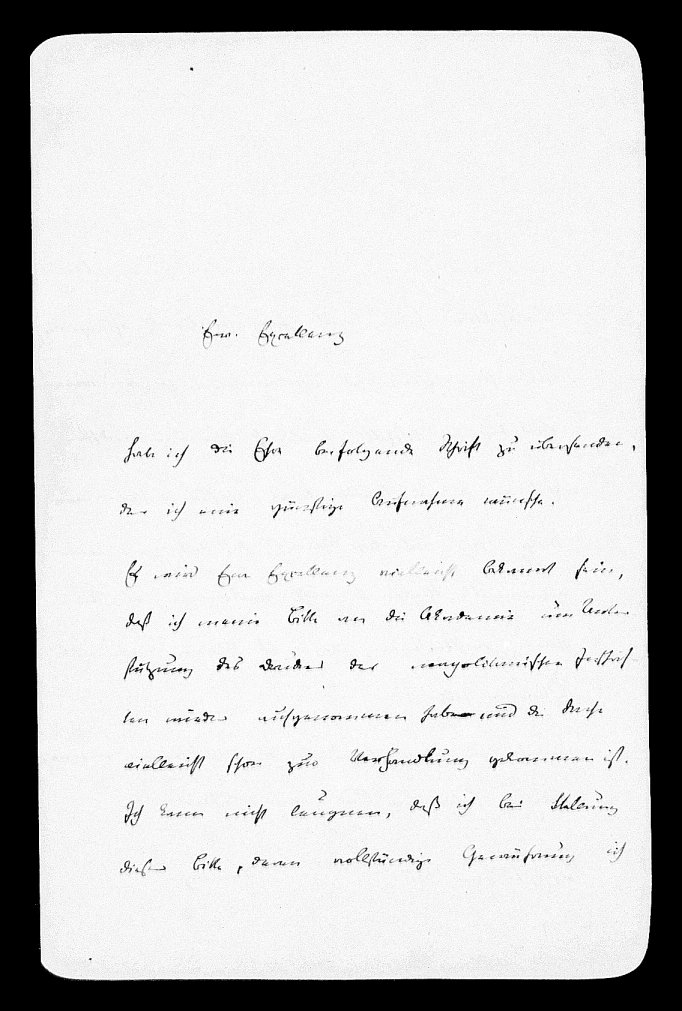 Ew. Excellenz
habe ich die Ehre beifolgende Schrift zu übersenden,
der ich eine günstige Aufnahme wünsche.
Es wird Ew. Excellenz vielleicht bekannt sein,
daß ich meine Bitte an die Akademie um Unter-
stützung des Druckes der neapolitanischen Inschrif-
ten wieder aufgenommen habe und die Sache
vielleicht schon zur Verhandlung gekommen ist.
Ich kann nicht läugnen, daß ich bei Stellung
dieser Bitte, deren vollständige Gewährung ich